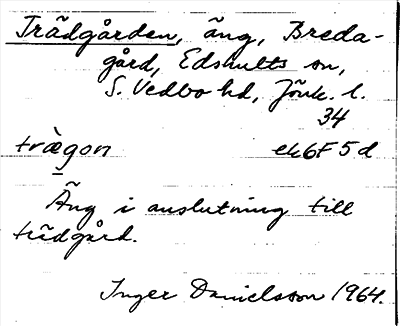 Trädgården, äng, Breda-
gård, Edshults sn,
S. Vedbo hd, Jönk. l.
34
trägon ek6F5d
Äng i anslutning till
trädgård.
Inger Danielsson 1964.